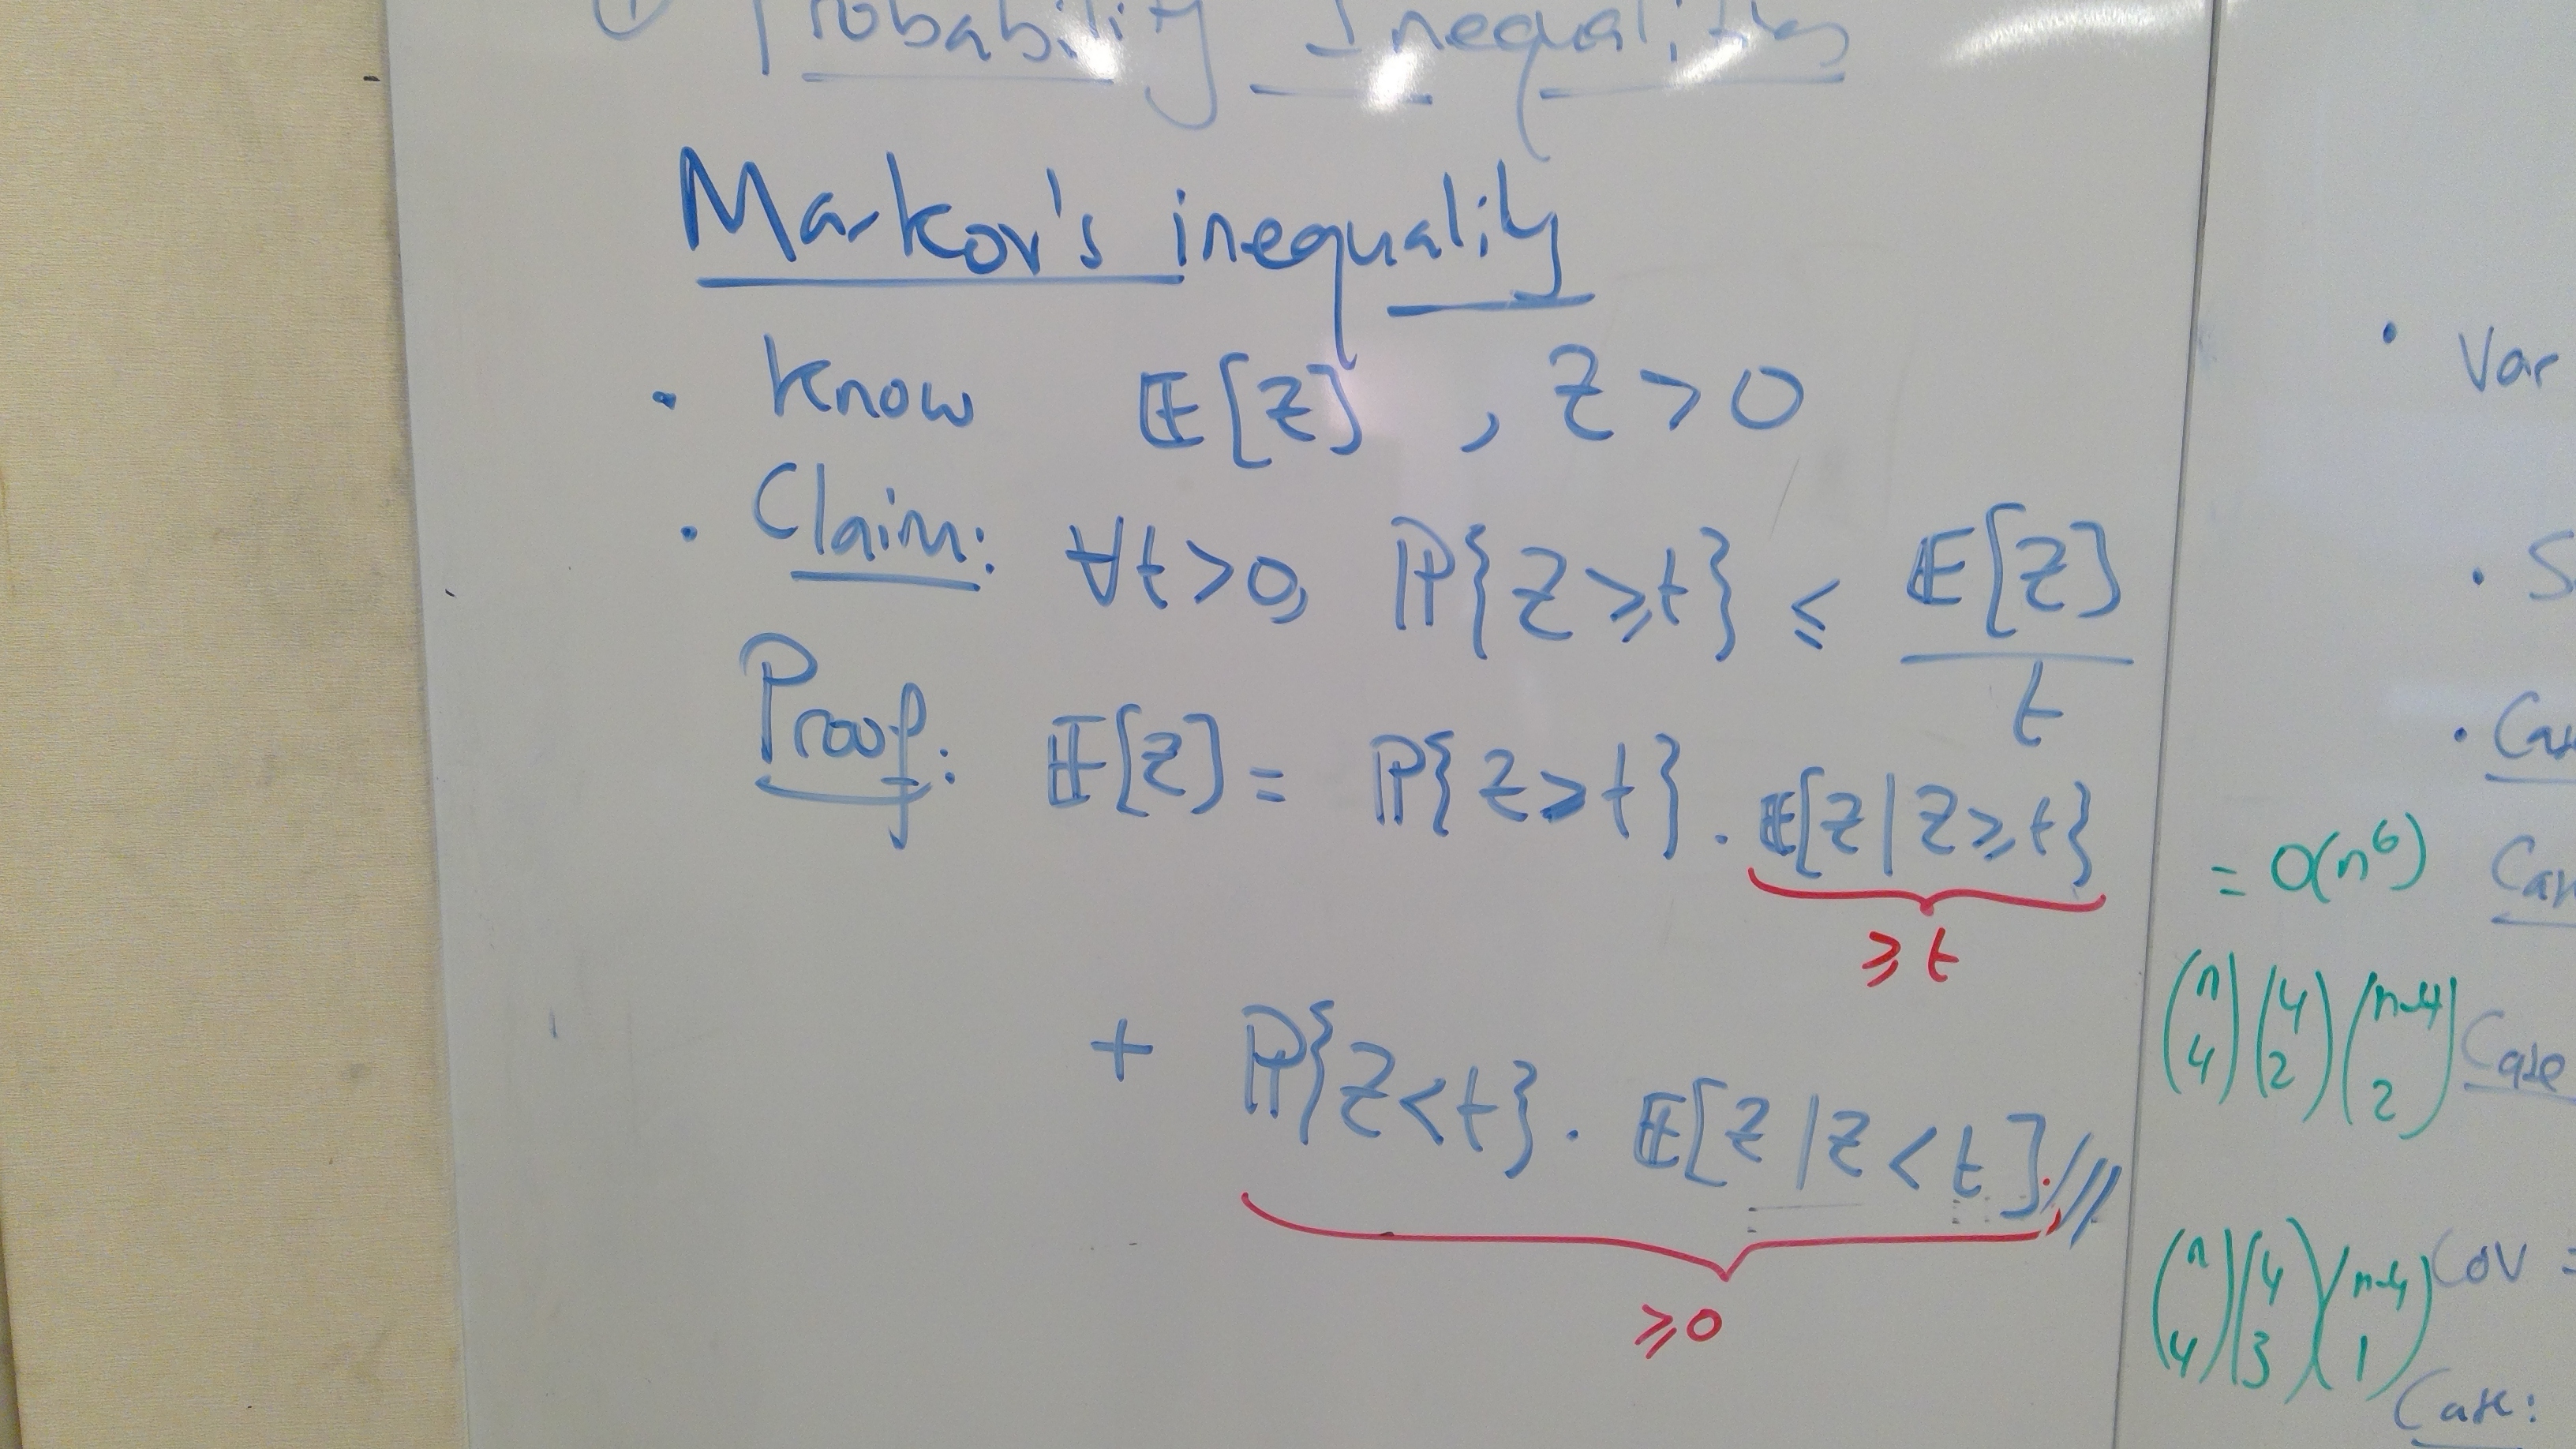 ① Probability Inequalities
Markov's inequality
• Know 𝔼[Z] , Z > 0
• Claim: ∀t>0, ℙ{Z⩾t} ≤ 𝔼[Z] / t
Proof: 𝔼[Z] = ℙ{Z⩾t} . 𝔼[Z|Z⩾t}
⩾ t
+ ℙ{Z<t} . 𝔼[Z|Z<t].///
⩾0
• Var
• S
= O(n⁶)
(n 4)(4 2)(n-4 2) Case
(n 4)(4 3)(n-4 1) Cov =
Case: